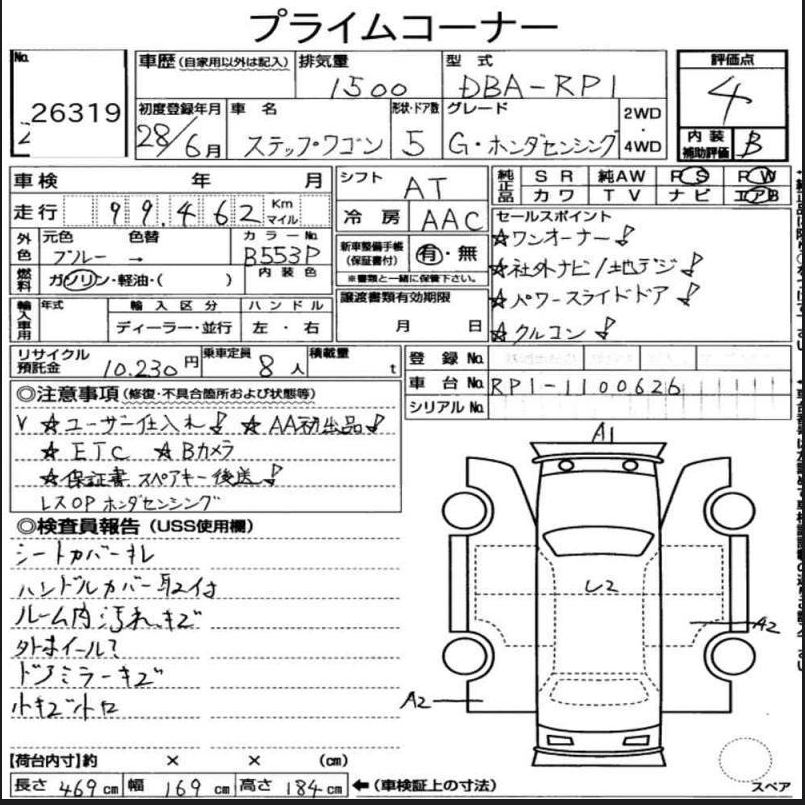 プライムコーナー
No. 26319
車歴 (自家用以外は記入) 排気量 1500 型式 DBA-RP1 評価点 4
初度登録年月 28/6月 車名 ステップワゴン 形状・ドア数 5 グレード G・ホンダセンシング 2WD・4WD 内装補助評価 B
車検 年 月 シフト AT 純正品 SR 純AW PS PW
カワ TV ナビ エアB
走行 99,462 Km マイル 冷房 AAC
セールスポイント
外色 元色 ブルー 色替 → カラーNo. B553P 新車整備手帳 (保証書付) 有・無
※書類と一緒に保管下さい。
☆ワンオーナー!
☆社外ナビ/地デジ!
☆パワースライドドア!
☆クルコン!
燃料 ガソリン・軽油・( ) 内装色
譲渡書類有効期限 月 日
輸入車用 年式 輸入区分 ハンドル
ディーラー・並行 左・右
リサイクル預託金 10,230円 乗車定員 8人 積載量 t 登録No.
車台No. RP1-1100626
シリアルNo.
◎注意事項 (修復・不具合箇所および状態等)
☆ユーザー仕入れ! ☆AA初出品!
☆ETC ☆Bカメラ
☆保証書 スペアキー後送!
レスOP ホンダセンシング
◎検査員報告 (USS使用欄)
シートカバーキレ
ハンドルカバー取付
ルーム内汚れ、キズ
外ホイール
ドアミラーキズ
小キズ小凹
A1
レ2
A2
A2
【荷台内寸】約 × × (cm)
長さ 469cm 幅 169cm 高さ 184cm ←(車検証上の寸法)
スペア